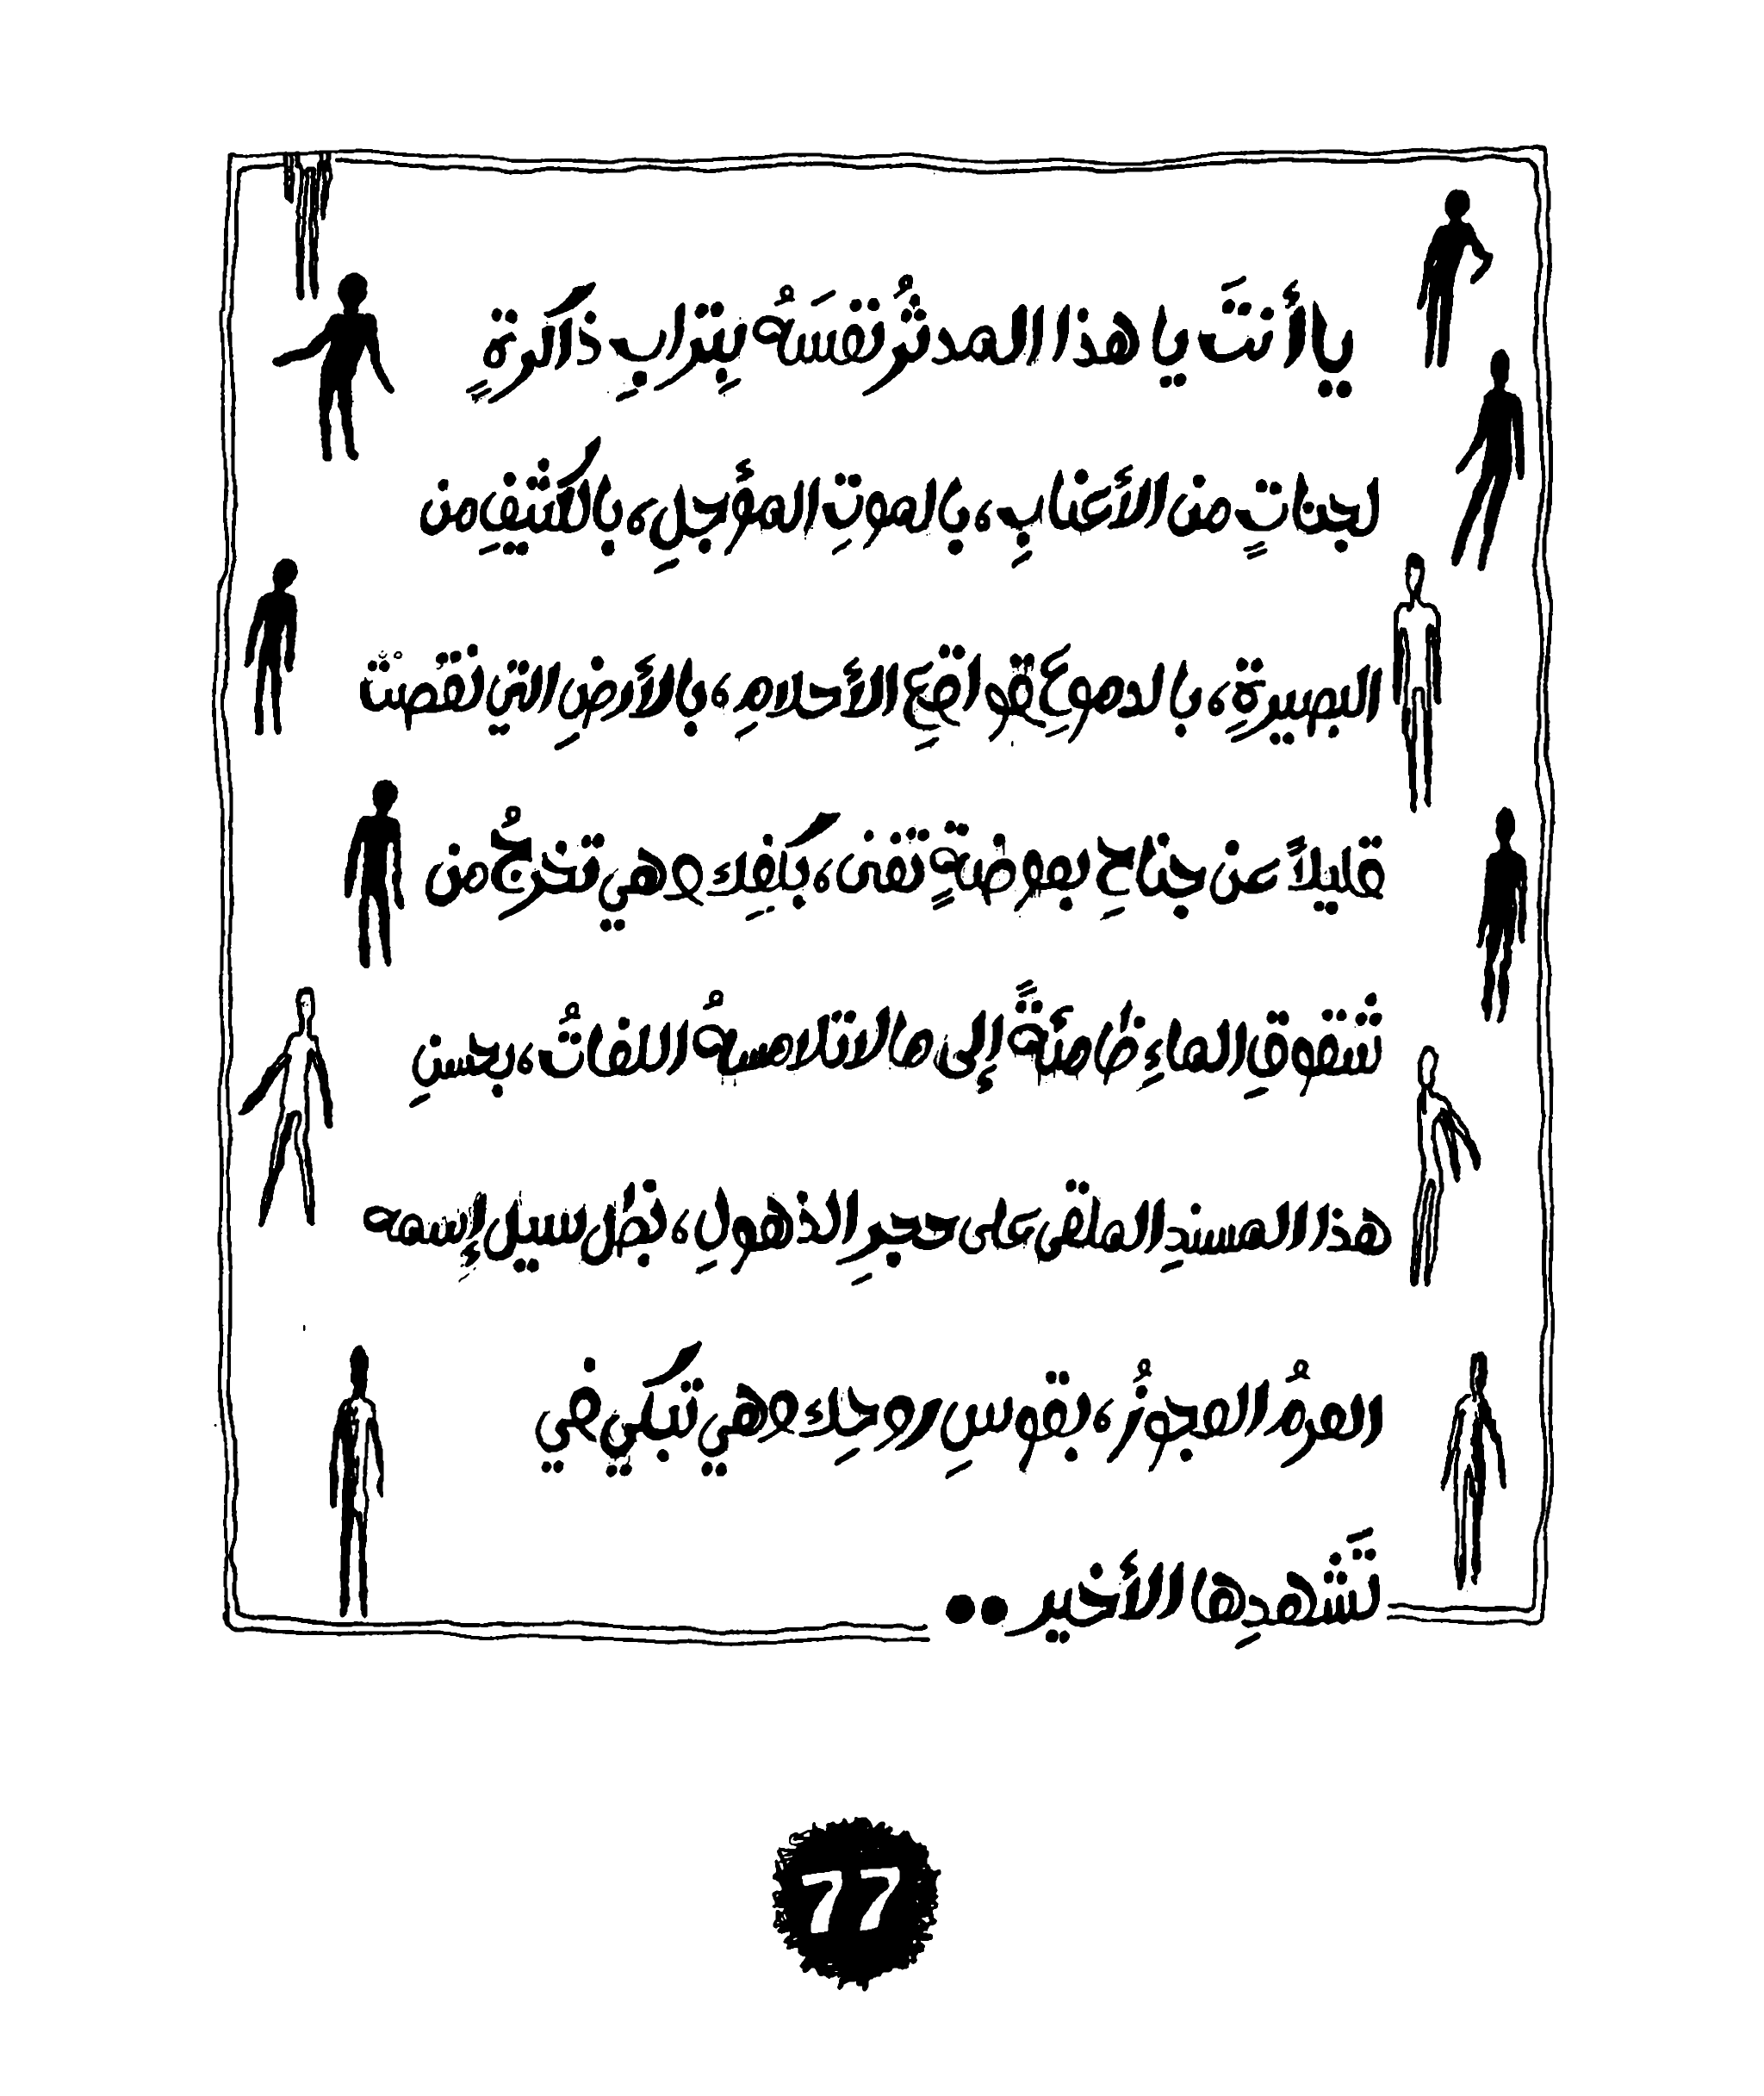 يا أنتَ يا هذا المدثرُ نفسَهُ بِترابِ ذاكرةٍ
لجناتٍ من الأعنابِ، بالموتِ المؤجلِ، بالكثيفِ من
البصيرةِ، بالدموعِ قواقعِ الأحلامِ، بالأرضِ التي نقُصتْ
قليلاً عن جناحِ بعوضةٍ تفنى، بكفِك وهي تخرجُ من
شقوقِ الماءِ ظامئةً إلى ما لا تلامسهُ اللغاتُ، بحسنِ
هذا المسندِ الملقى على حجرِ الذهولِ، بظل سيل إسمه
العرمُ العجوزُ، بقوسِ روحِك وهي تبكي في
تَشهدِها الأخير ..
77